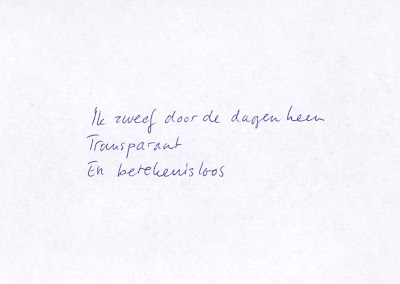 Ik zweef door de dagen heen
Transparant
En betekenisloos